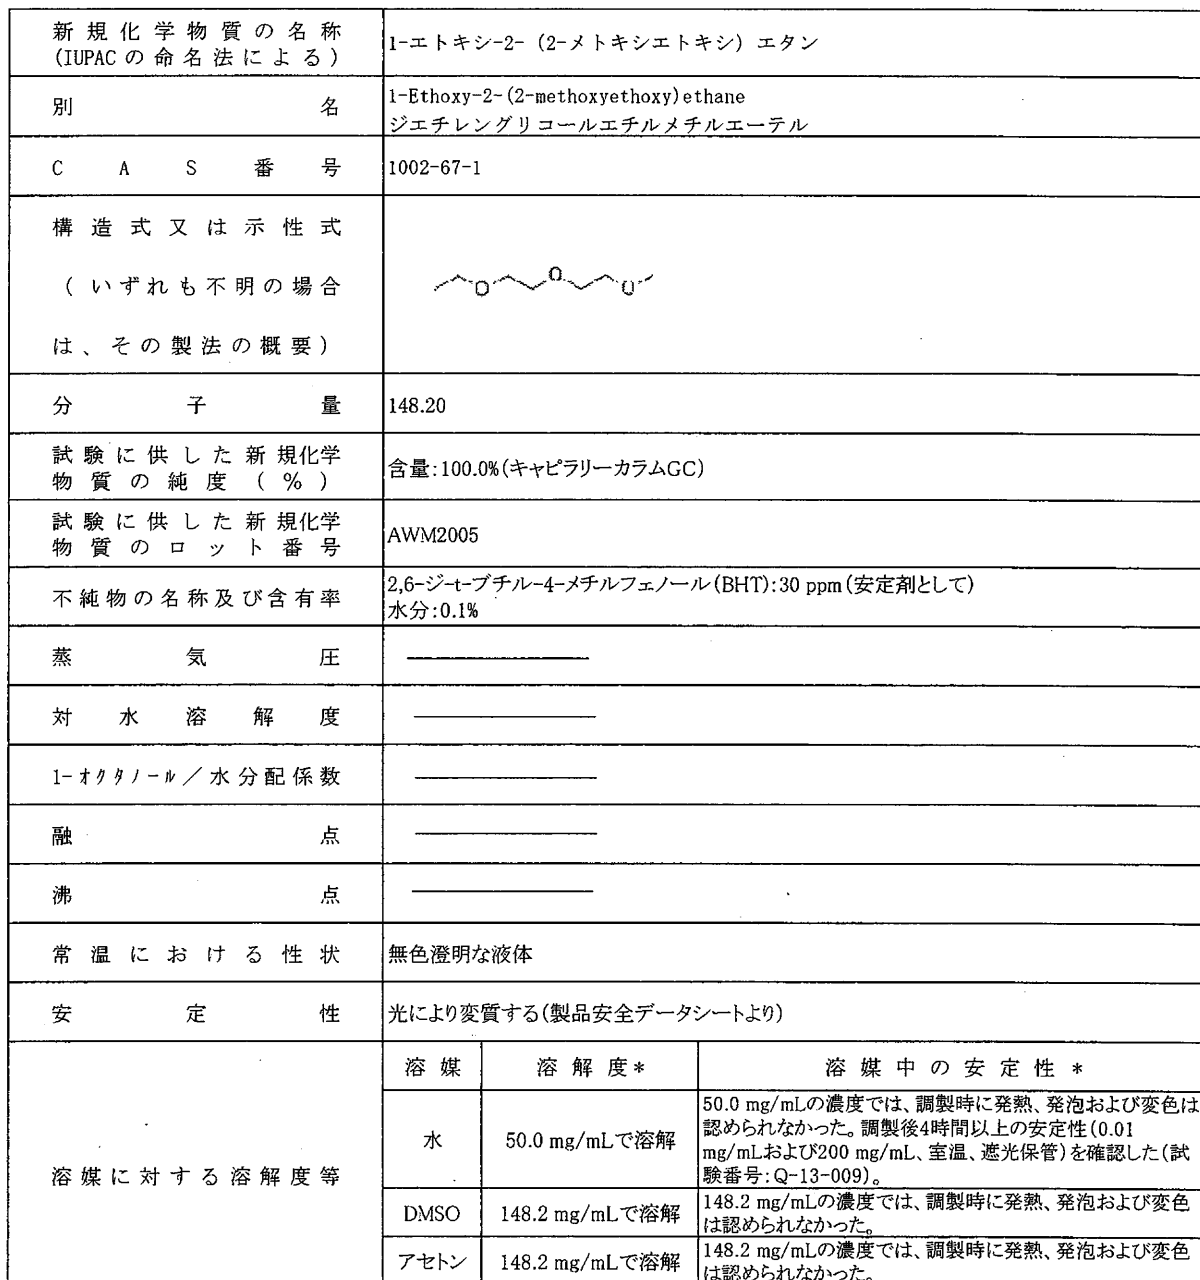 新規化学物質の名称
(IUPACの命名法による)
1-エトキシ-2-(2-メトキシエトキシ)エタン
別名
1-Ethoxy-2-(2-methoxyethoxy)ethane
ジエチレングリコールエチルメチルエーテル
CAS番号
1002-67-1
構造式又は示性式
(いずれも不明の場合
は、その製法の概要)
O O O
分子量
148.20
試験に供した新規化学
物質の純度(%)
含量:100.0%(キャピラリーカラムGC)
試験に供した新規化学
物質のロット番号
AWM2005
不純物の名称及び含有率
2,6-ジ-t-ブチル-4-メチルフェノール(BHT):30 ppm(安定剤として)
水分:0.1%
蒸気圧
対水溶解度
1-オクタノール/水分配係数
融点
沸点
常温における性状
無色澄明な液体
安定性
光により変質する(製品安全データシートより)
溶媒に対する溶解度等
溶媒 溶解度* 溶媒中の安定性*
水
50.0 mg/mLで溶解
50.0 mg/mLの濃度では、調製時に発熱、発泡および変色は
認められなかった。調製後4時間以上の安定性(0.01
mg/mLおよび200 mg/mL、室温、遮光保管)を確認した(試
験番号:Q-13-009)。
DMSO
148.2 mg/mLで溶解
148.2 mg/mLの濃度では、調製時に発熱、発泡および変色
は認められなかった。
アセトン
148.2 mg/mLで溶解
148.2 mg/mLの濃度では、調製時に発熱、発泡および変色
は認められなかった。